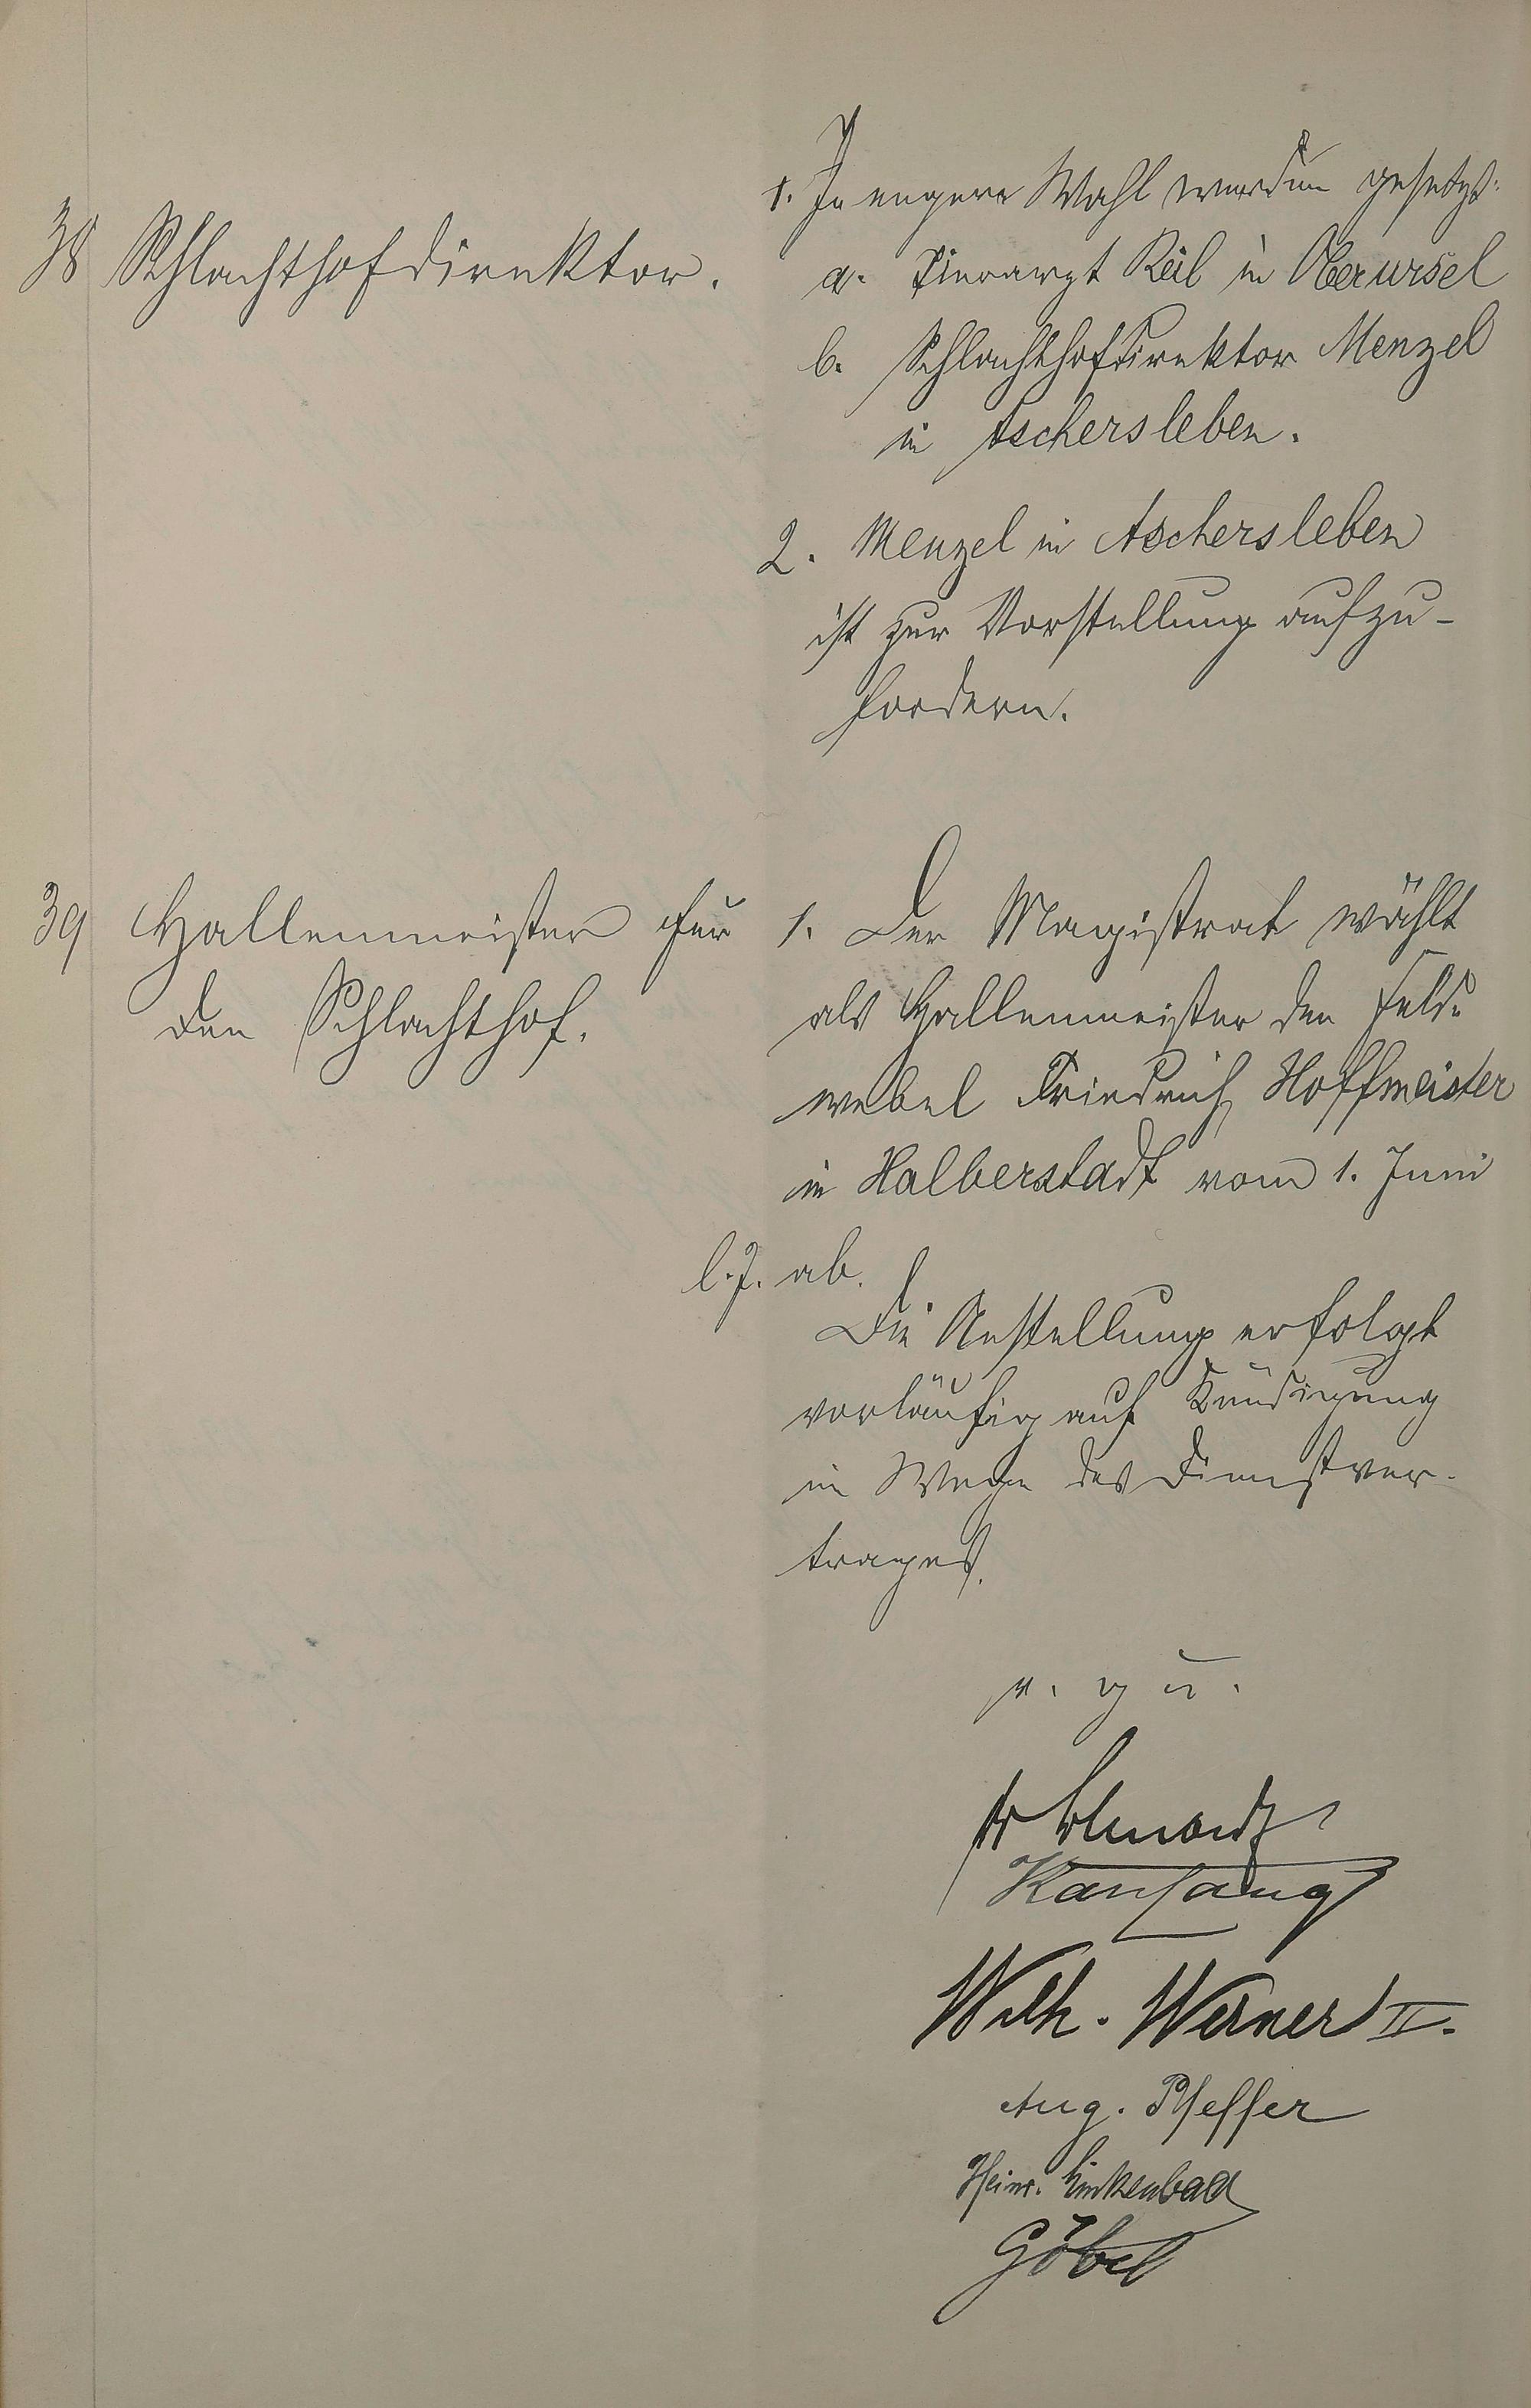 38 Schlachthofdirektor.
1. In engere Wahl werden gesetzt:
a. Tierarzt Keil in Oberursel
b. Schlachthofdirektor Menzel
in Aschersleben.
2. Menzel in Aschersleben
ist zur Vorstellung aufzu-
fordern.
39 Hallenmeister für
den Schlachthof.
1. Der Magistrat wählt
als Hallenmeister den Feld-
webel Friedrich Hoffmeister
in Halberstadt vom 1. Juni
l. J. ab.
Die Anstellung erfolgt
vorläufig auf Kündigung
im Wege des Dienstver-
trages.
v. g. u.
Wilh. Werner II.
Aug. Pfeffer
Heinr.
Göbel